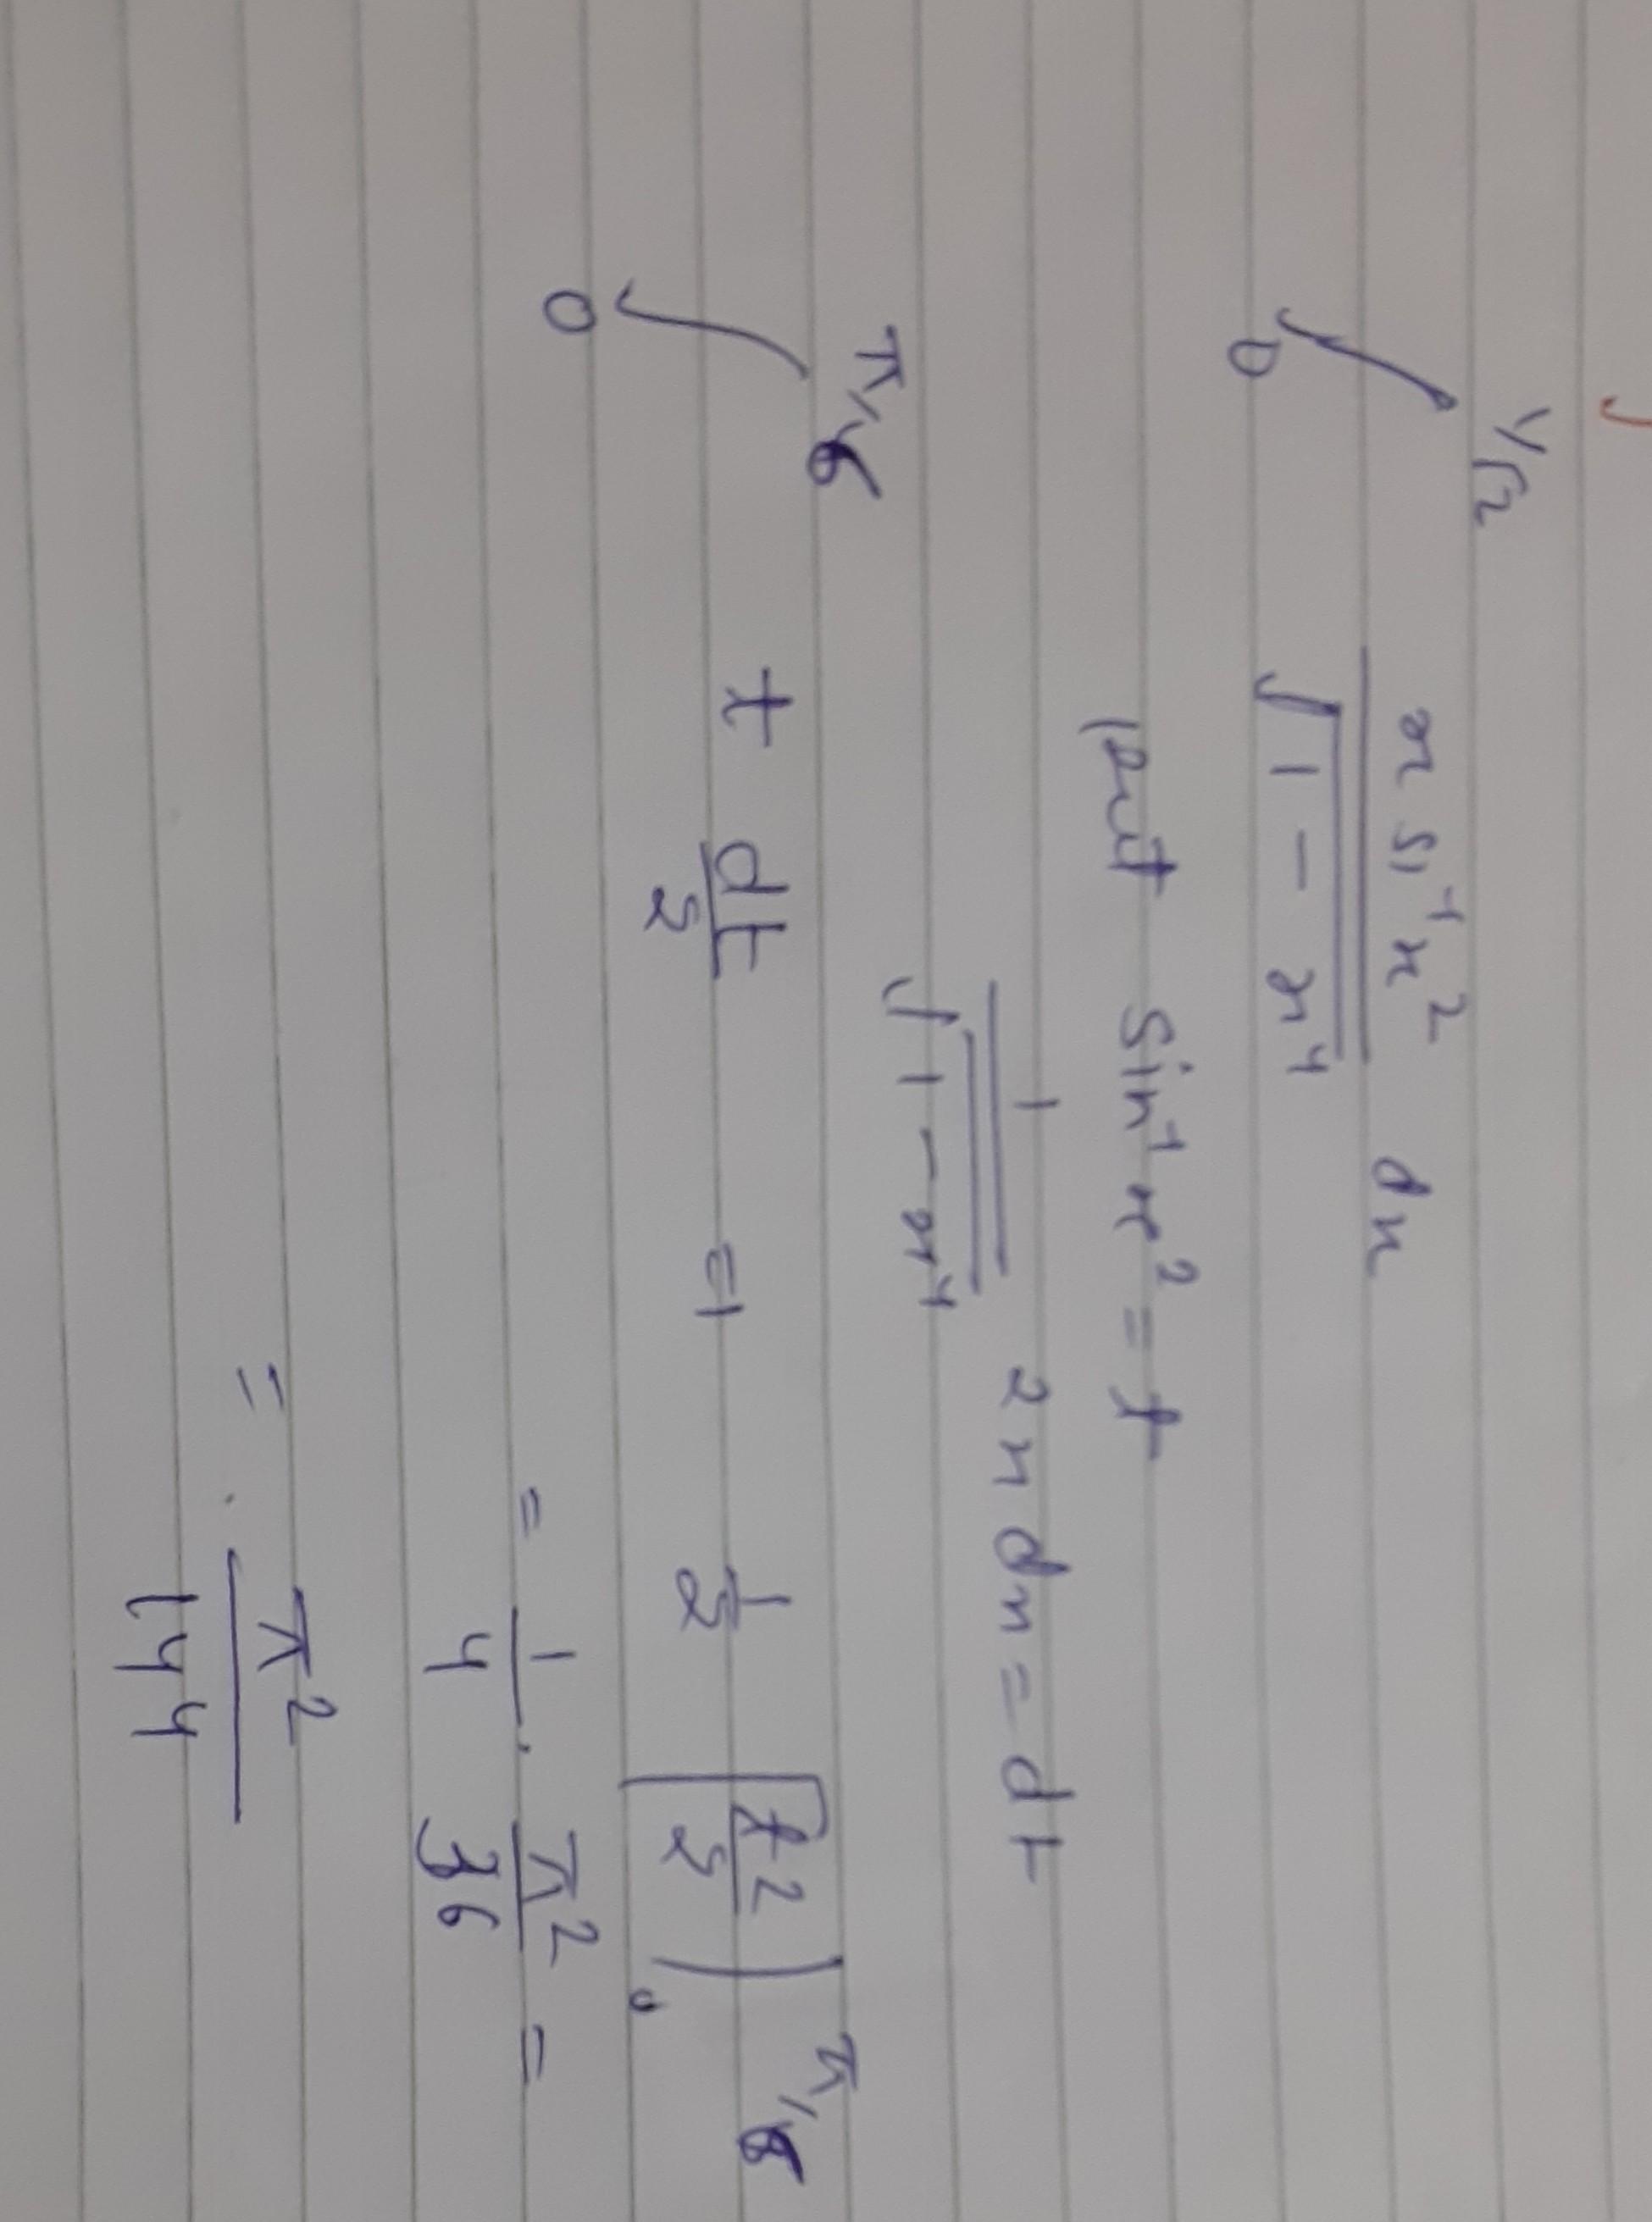 ∫₀^{1/√2} x si⁻¹x² / √1 − x⁴ dx
put sin⁻¹x² = t
1 / √1 − x⁴ 2x dx = dt
∫₀^{π/6} t dt/2 = 1/2 [t²/2]₀^{π/6}
= 1/4 . π²/36 =
= π²/144